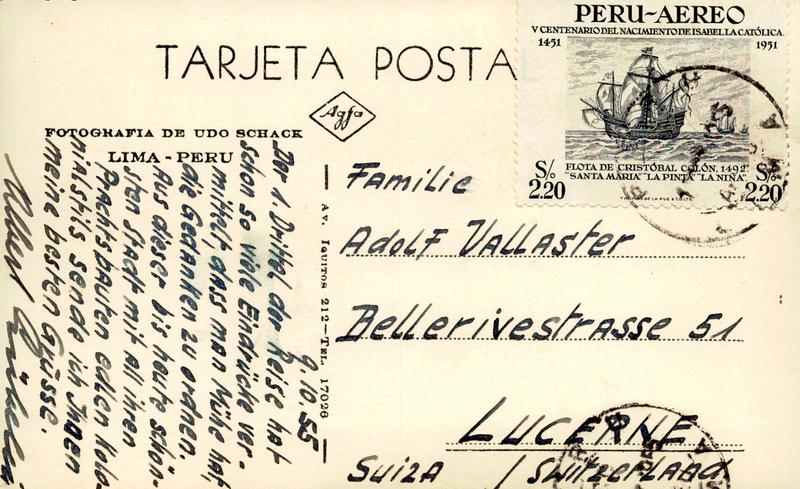 TARJETA POSTAL
Agfa
FOTOGRAFIA DE UDO SCHACK
LIMA - PERU
AV. IQUITOS 212—TEL. 17026
9.10.55
Der 1. Drittel der Reise hat
schon so viele Eindrücke ver-
mittelt, dass man Mühe hat,
die Gedanken zu ordnen.
Aus dieser bis heute schön-
sten Stadt mit all ihren
Prachtsbauten edlen Kolo-
nialstils sende ich Ihnen
meine besten Grüsse.
Familie
Adolf Vallaster
Bellerivestrasse 51
LUCERNE
Suiza / Switzerland
PERU-AEREO
V CENTENARIO DEL NACIMIENTO DE ISABEL LA CATÓLICA.
1451 1951
FLOTA DE CRISTÓBAL COLÓN, 1492
"SANTA MARIA" "LA PINTA" "LA NIÑA"
S/o 2.20 S/o 2.20
THOMAS DE LA RUE & CO. LTD.